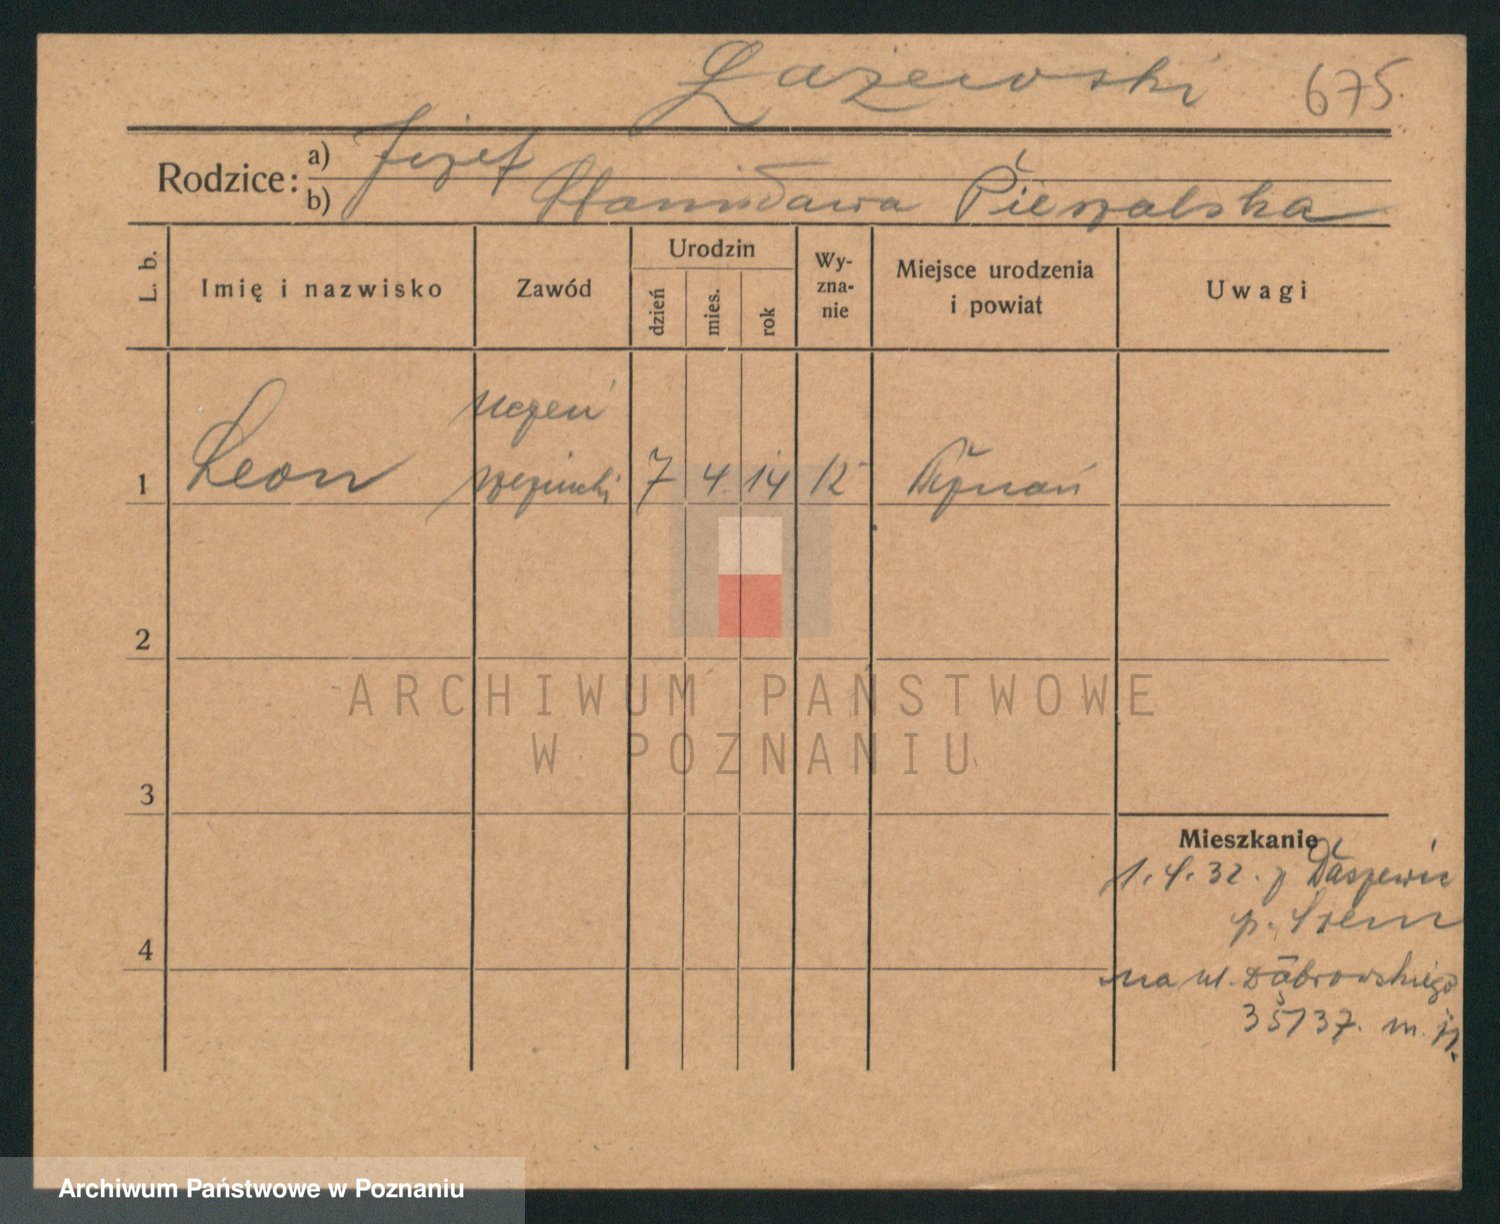 Łażewski 675
Rodzice: a) Józef
b) Stanisława
L. b.
Imię i nazwisko
Zawód
Urodzin
dzień
mies.
rok
Wy-
zna-
nie
Miejsce urodzenia
i powiat
Uwagi
1 Leon uczeń
7 4 14 Poznań
2
3
4
Mieszkanie
1.4.32. z Daszewic
p. Śrem
na ul. Dąbrowskiego
35/37. m.
ARCHIWUM PAŃSTWOWE
W POZNANIU
Archiwum Państwowe w Poznaniu